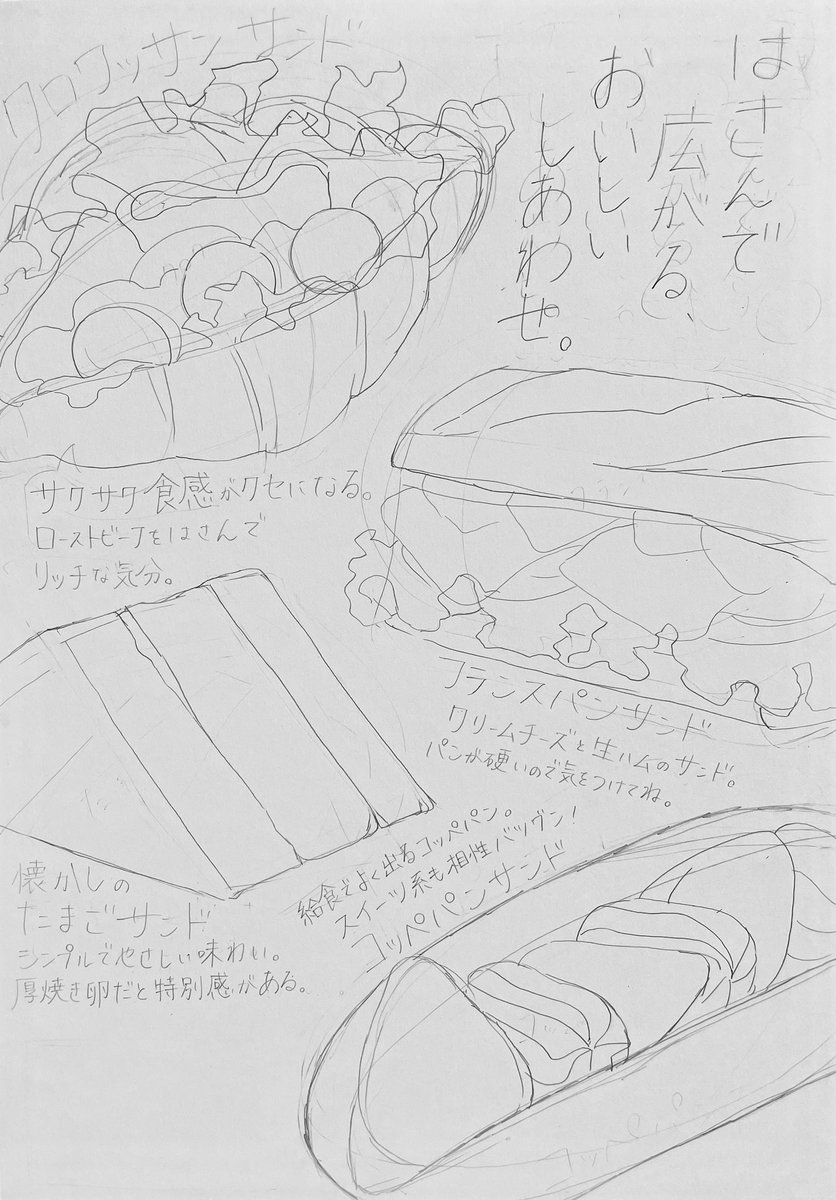 はさんで
広がる、
おいしい
しあわせ。
クロワッサンサンド
サクサク食感がクセになる。
ローストビーフをはさんで
リッチな気分。
フランスパンサンド
クリームチーズと生ハムのサンド。
パンが硬いので気をつけてね。
懐かしの
たまごサンド
シンプルでやさしい味わい。
厚焼き卵だと特別感がある。
給食でよく出るコッペパン。
スイーツ系も相性バツグン！
コッペパンサンド